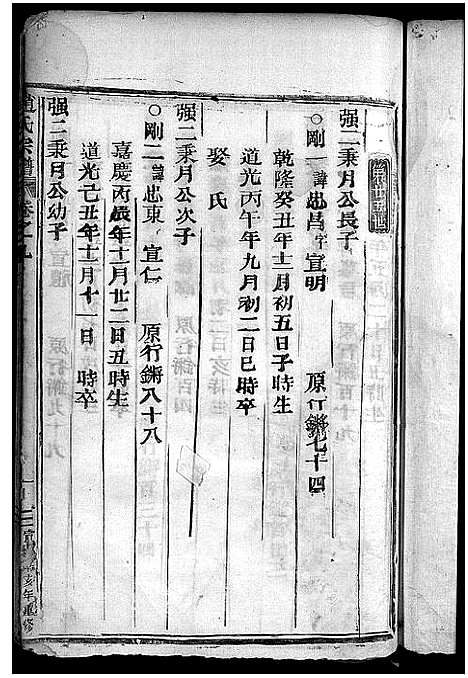 强二秉月公長子
○剛一諱忠昌字宣明 原行鏘七十四
乾隆癸丑年十二月初五日子時生
道光丙午年九月初二日巳時卒
娶 氏
强二秉月公次子
○剛二諱忠東 宣仁 原行鏘八十八
嘉慶丙辰年十一月廿二日丑時生
道光己丑年十二月十一日 時卒
强二秉月公幼子
氏宗譜 卷之九
亥年重修